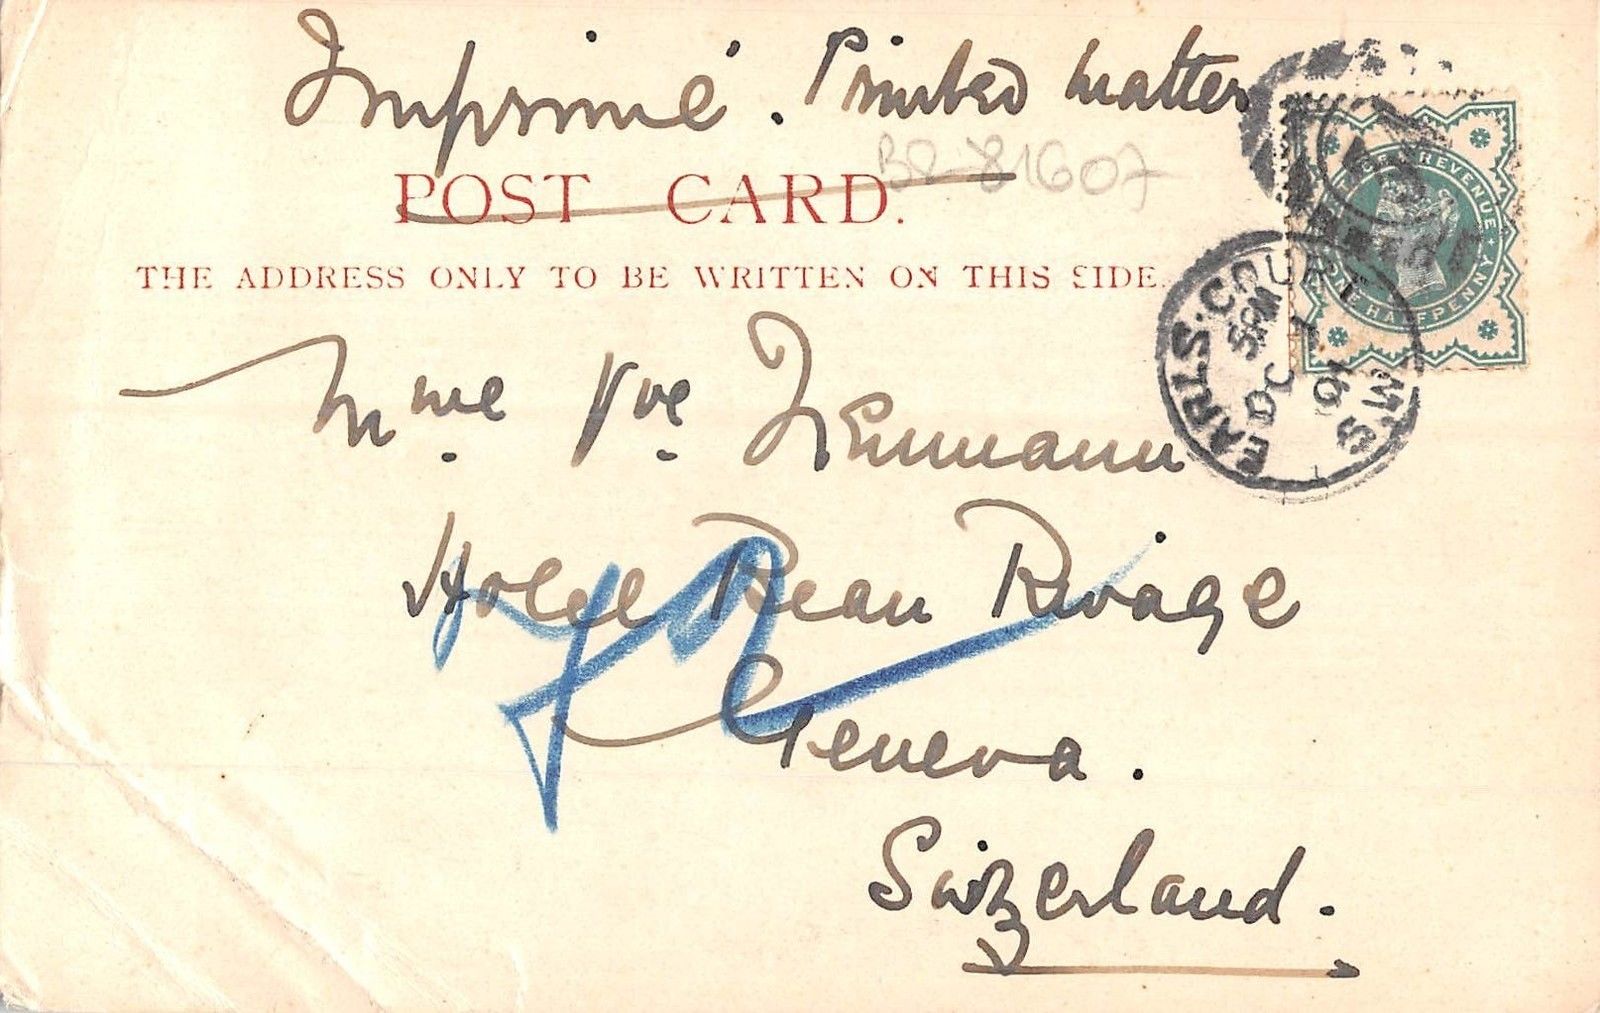 Imprimé. Printed matter
BR 81607
POST CARD.
THE ADDRESS ONLY TO BE WRITTEN ON THIS SIDE.
POSTAGE & REVENUE
ONE HALFPENNY
EARLS.COURT S.W.
5 PM
DC
01
Mme. Vve. Neumann
Hotel Beau Rivage
Geneva.
Swizerland.